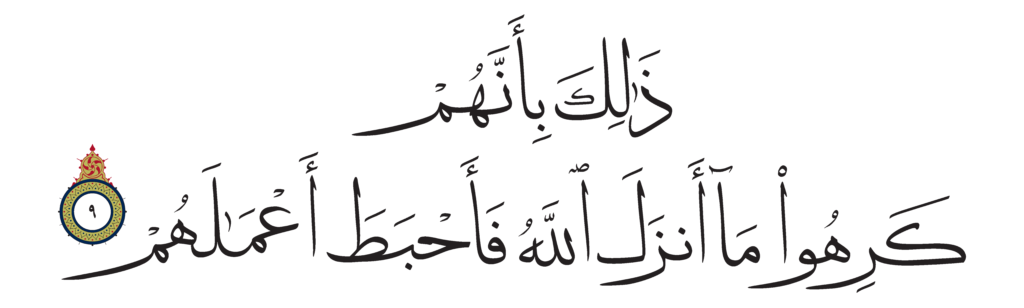 ذَٰلِكَ بِأَنَّهُمْ
كَرِهُوا۟ مَآ أَنزَلَ ٱللَّهُ فَأَحْبَطَ أَعْمَـٰلَهُمْ ٩